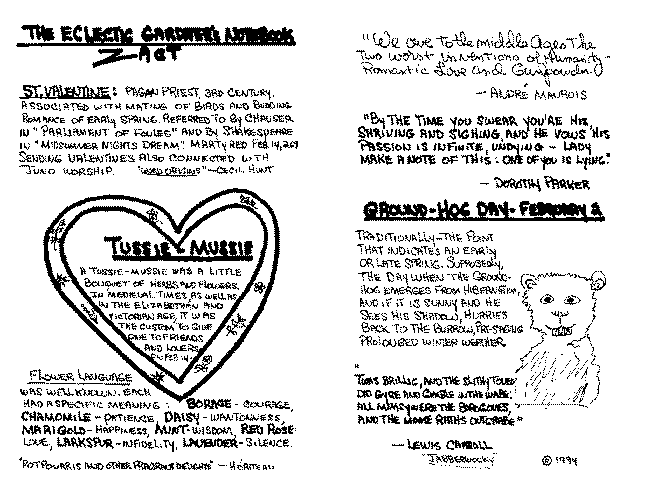 THE ECLECTIC GARDNER'S NOTEBOOK
Z-ACT
ST. VALENTINE: PAGAN PRIEST, 3RD CENTURY.
ASSOCIATED WITH MATING OF BIRDS AND BUDDING
ROMANCE OF EARLY SPRING. REFERRED TO BY CHAUSER
IN "PARLIAMENT OF FOULES" AND BY SHAKESPEARE
IN "MIDSUMMER NIGHTS DREAM". MARTYRED FEB 14, 269
SENDING VALENTINES ALSO CONNECTED WITH
JUNO WORSHIP. "WORD ORIGINS" - CECIL HUNT
TUSSIE - MUSSIE
A TUSSIE-MUSSIE WAS A LITTLE
BOUQUET OF HERBS AND FLOWERS.
IN MEDIEVAL TIMES AS WELL AS
IN THE ELIZABETHAN AND
VICTORIAN AGE, IT WAS
THE CUSTOM TO GIVE
ONE TO FRIENDS
AND LOVERS
ON FEB 14.
FLOWER LANGUAGE
WAS WELL KNOWN. EACH
HAD A SPECIFIC MEANING: BORAGE - COURAGE,
CHAMOMILE - PATIENCE, DAISY - WANTONNESS,
MARIGOLD - HAPPINESS, MINT - WISDOM, RED ROSE-
LOVE, LARKSPUR - INFIDELITY, LAVENDER - SILENCE.
"POTPOURRIS AND OTHER FRAGRANT DELIGHTS" -
"We owe to the middle Ages The
Two worst inventions of Humanity -
Romantic Love and Gunpowder."
- ANDRÉ MAUROIS
"BY THE TIME YOU SWEAR YOU'RE HIS,
SHIVING AND SIGHING, AND HE VOWS HIS
PASSION IS INFINITE, UNDYING - LADY
MAKE A NOTE OF THIS: ONE OF YOU IS LYING."
- DOROTHY PARKER
GROUND-HOG DAY - FEBRUARY 2
TRADITIONALLY - THE POINT
THAT INDICATES AN EARLY
OR LATE SPRING. SUPPOSEDLY,
THE DAY WHEN THE GROUND-
HOG EMERGES FROM HIBERNATION
AND IF IT IS SUNNY AND HE
SEES HIS SHADOW, HURRIES
BACK TO THE BURROW, PRESAGING
PROLOUGED WINTER WEATHER.
"TWAS BRILLIG, AND THE SLITHY TOVES
DID GYRE AND GIMBLE IN THE WABE:
ALL MIMSY WERE THE BOROGOVES,
AND THE MOME RATHS OUTGRABE"
- LEWIS CARROLL
JABBERWOCKY
© 1994